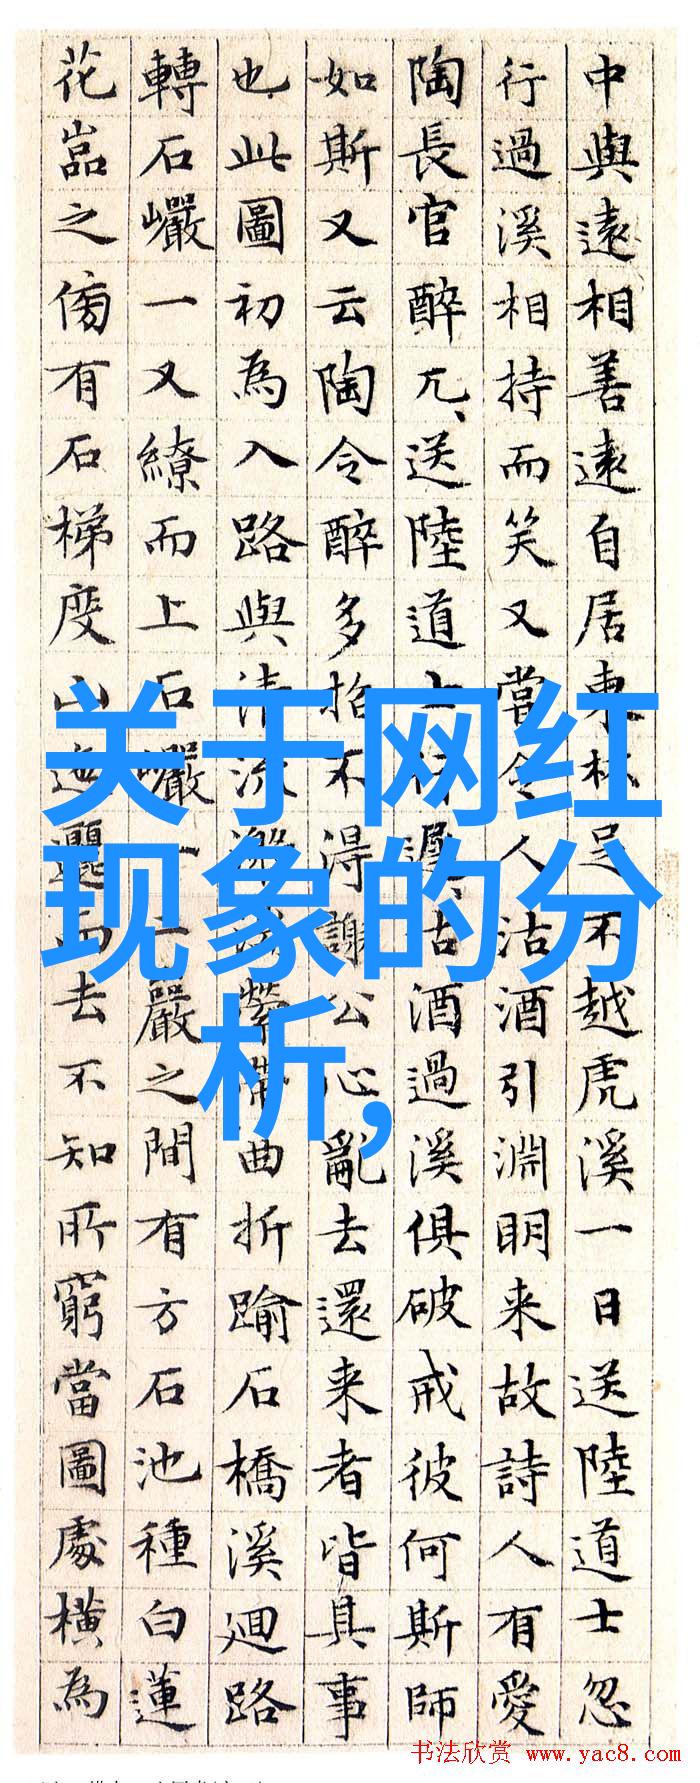 关于网红
现象的分
析,
中與遠相善遠自居東林足不越虎溪一日送陸道士忽
行過溪相持而笑又嘗令人沽酒引淵明来故詩人有愛
陶長官醉兀、送陸道士行遲、沽酒過溪俱破戒彼何斯師
如斯又云陶令醉多招不得謝公心亂去還来者皆其事
也此圖初為入路與清流縈帶曲折踰石橋溪迴路
轉石巖一又繚而上石巖一巖之間有方石池種白蓮
花嵓之傍有石梯度山迤邐而去不知所窮當圖處橫為
书法欣赏 www.yac8.com